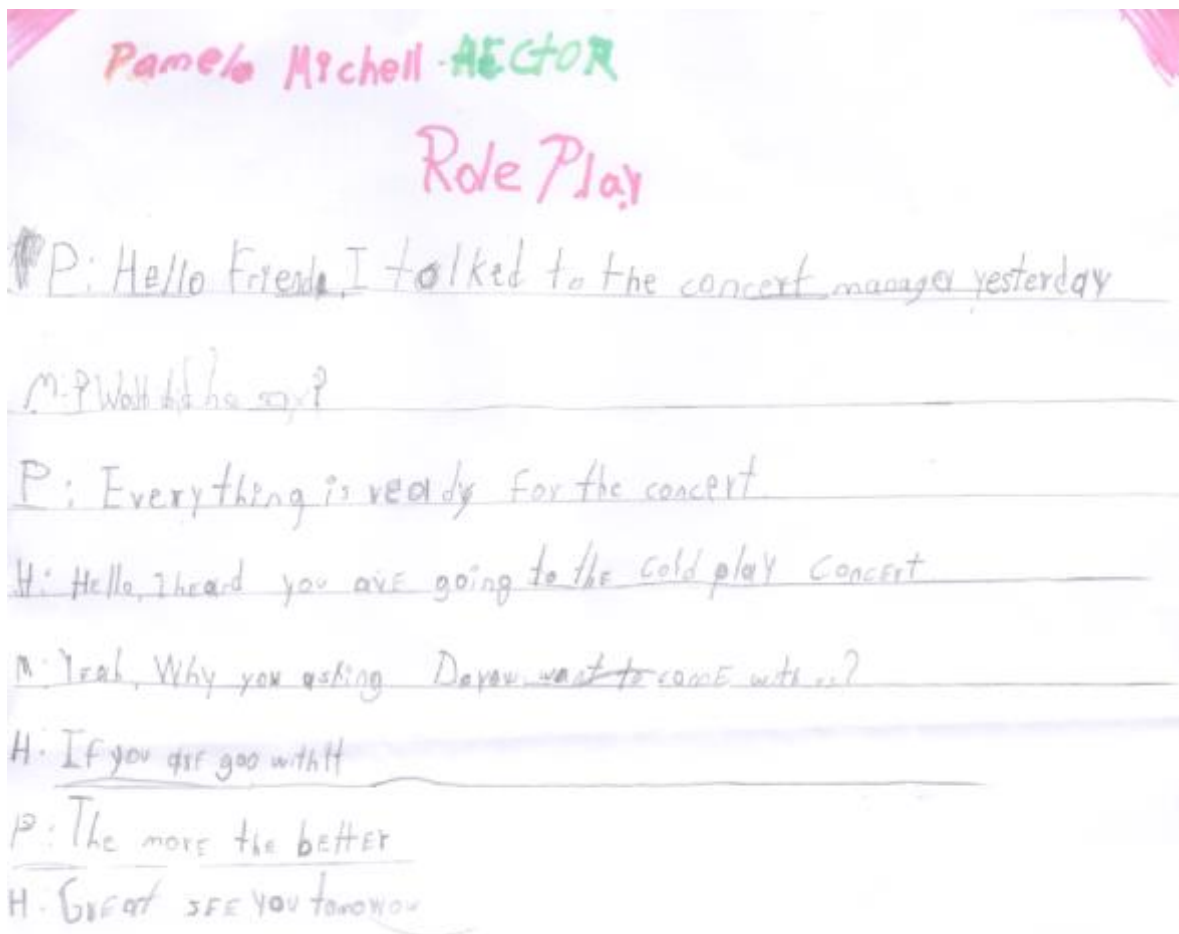 Pamela Michell HECTOR
Role Play
P: Hello Friends, I talked to the concert manager yesterday
M: Watt did he say?
P: Everything is ready for the concert.
H: Hello, I heard you are going to the cold play concert
M: Yeah, Why you asking Do you want to come with ..?
H: If you are goo with it
P: The more the better
H. Great see you tomorow